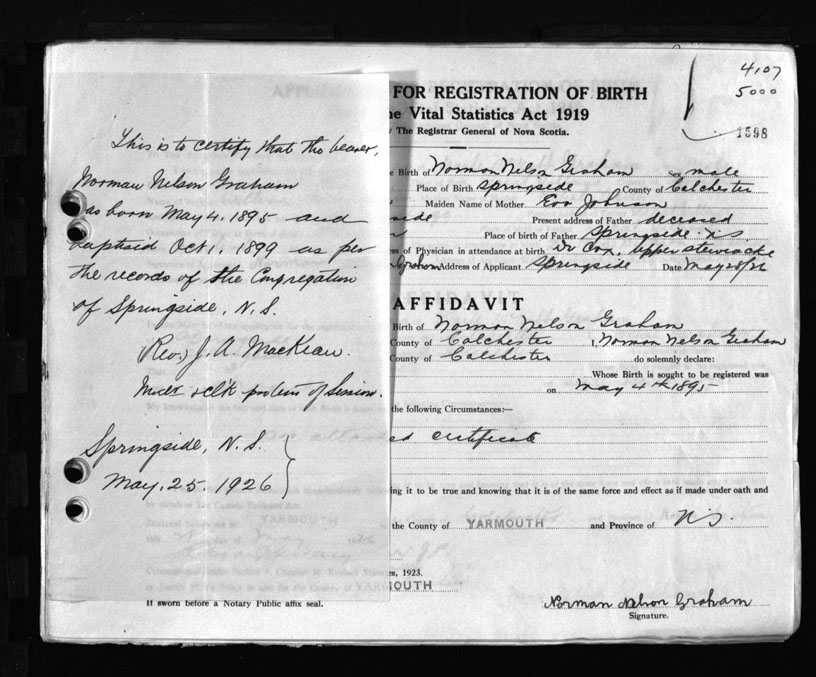 This is to certify that the bearer,
Norman Nelson Graham
as born May 4. 1895 and
baptsid Oct 1. 1899 as per
the records of the Congregation
of Springside, N.S.
(Rev.) J. A. MacKean.
of Session.
Springside, N.S.
May. 25. 1926
If sworn before a Notary Public affix seal.
4107
5000
1598
FOR REGISTRATION OF BIRTH
Vital Statistics Act 1919
The Registrar General of Nova Scotia.
Birth of Norman Nelson Graham Sex male
Place of Birth Springside County of Colchester
Maiden Name of Mother Eva Johnson
side Present address of Father deceased
Place of birth of Father Springside N.S
of Physician in attendance at birth Dr Cox, Upper Stewiacke
Graham Address of Applicant Springside Date May 28/26
AFFIDAVIT
Birth of Norman Nelson Graham
County of Colchester I, Norman Nelson Graham
County of Colchester do solemnly declare:
Whose Birth is sought to be registered was
on May 4th 1895
the following Circumstances:—
certificate
ing it to be true and knowing that it is of the same force and effect as if made under oath and
the County of YARMOUTH and Province of N.S.
es, 1923.
MOUTH
Norman Nelson Graham
Signature.